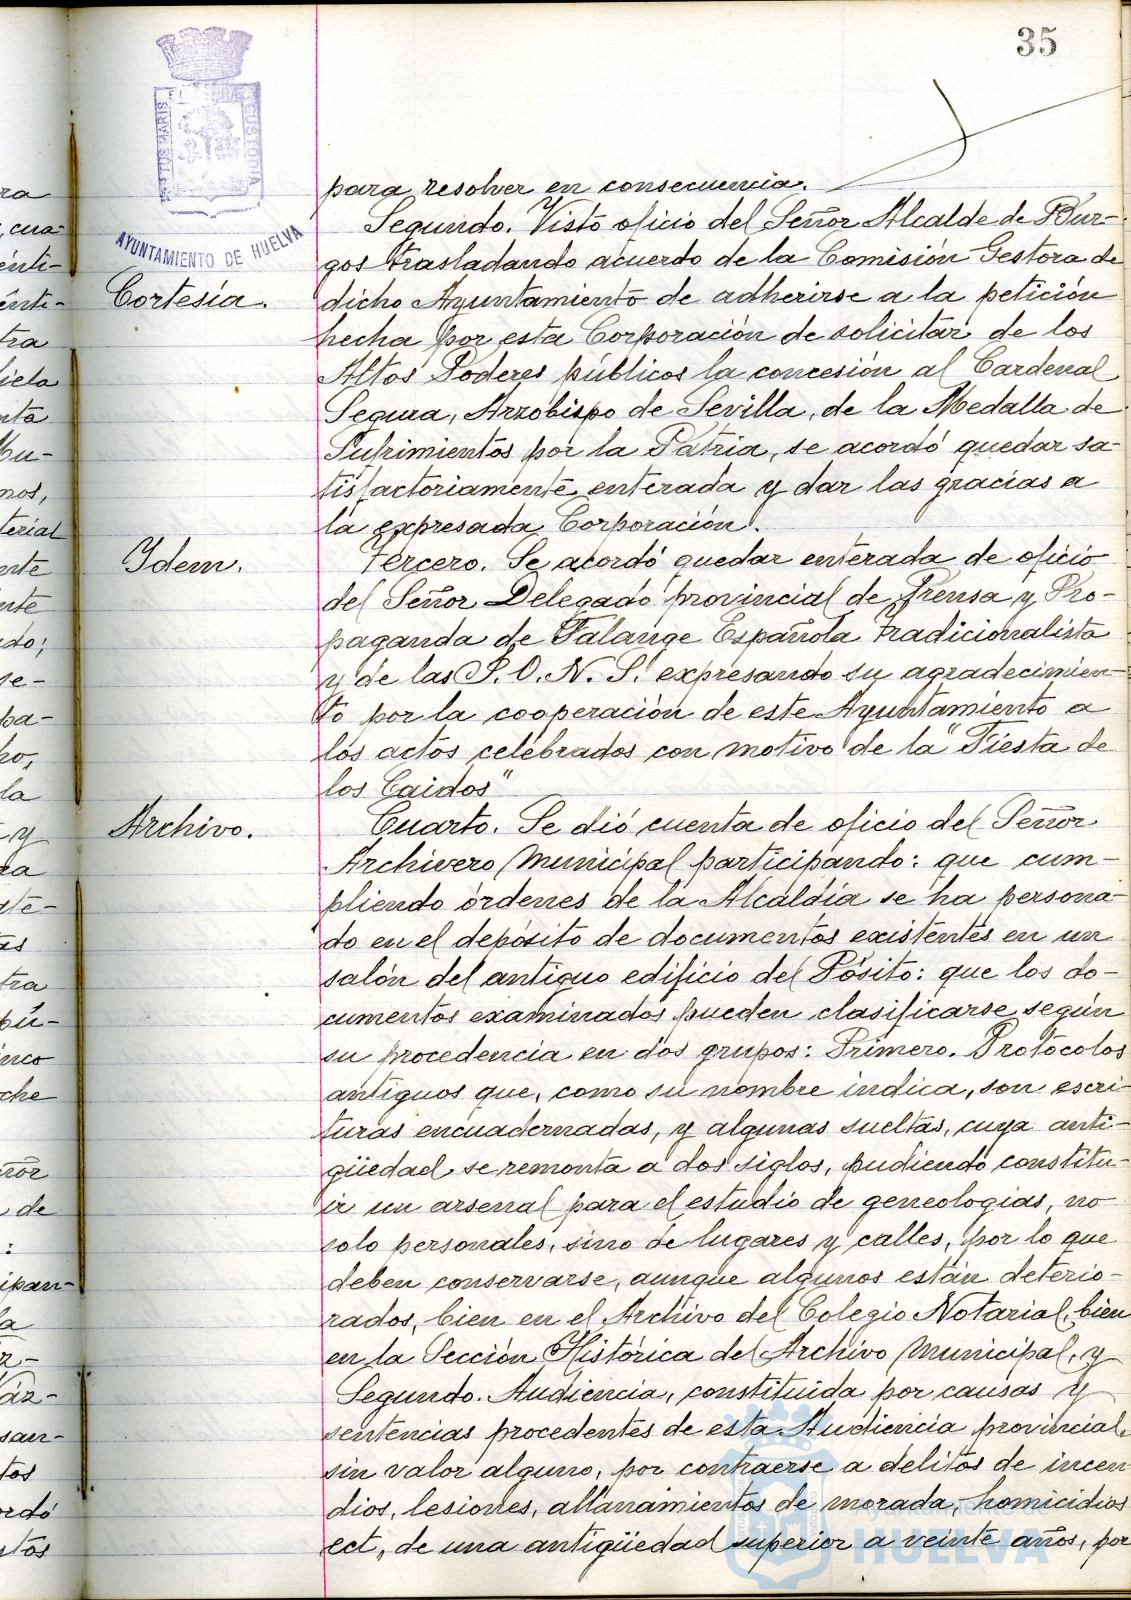 35
PORTUS MARIS ET TERRE CUSTODIA
AYUNTAMIENTO DE HUELVA
para resolver en consecuencia.
Segundo. Visto oficio del Señor Alcalde de Bur-
gos trasladando acuerdo de la Comisión Gestora de
Cortesía.
dicho Ayuntamiento de adherirse a la petición
hecha por esta Corporación de solicitar de los
Altos Poderes públicos la concesión al Cardenal
Segura, Arzobispo de Sevilla, de la Medalla de
Sufrimientos por la Patria, se acordó quedar sa-
tisfactoriamente enterada y dar las gracias a
la expresada Corporación.
Idem.
Tercero. Se acordó quedar enterada de oficio
del Señor Delegado provincial de Prensa y Pro-
paganda de Falange Española Tradicionalista
y de las J.O.N.S. expresando su agradecimien-
to por la cooperación de este Ayuntamiento a
los actos celebrados con motivo de la "Fiesta de
los Caidos"
Archivo.
Cuarto. Se dió cuenta de oficio del Señor
Archivero Municipal participando: que cum-
pliendo órdenes de la Alcaldía se ha persona-
do en el depósito de documentos existentes en un
salón del antiguo edificio del Pósito: que los do-
cumentos examinados pueden clasificarse según
su procedencia en dos grupos: Primero. Protocolos
antiguos que, como su nombre indica, son escri-
turas encuadernadas, y algunas sueltas, cuya anti-
güedad se remonta a dos siglos, pudiendo constitu-
ir un arsenal para el estudio de geneologias, no
solo personales, sino de lugares y calles, por lo que
deben conservarse, aunque algunos están deterio-
rados, bien en el Archivo del Colegio Notarial, bien
en la Sección Histórica del Archivo Municipal, y
Segundo. Audiencia, constituida por causas y
sentencias procedentes de esta Audiencia provincial,
sin valor alguno, por contraerse a delitos de incen
dios, lesiones, allanamientos de morada, homicidios
ect, de una antigüedad superior a veinte años, por
Ayuntamiento de
HUELVA